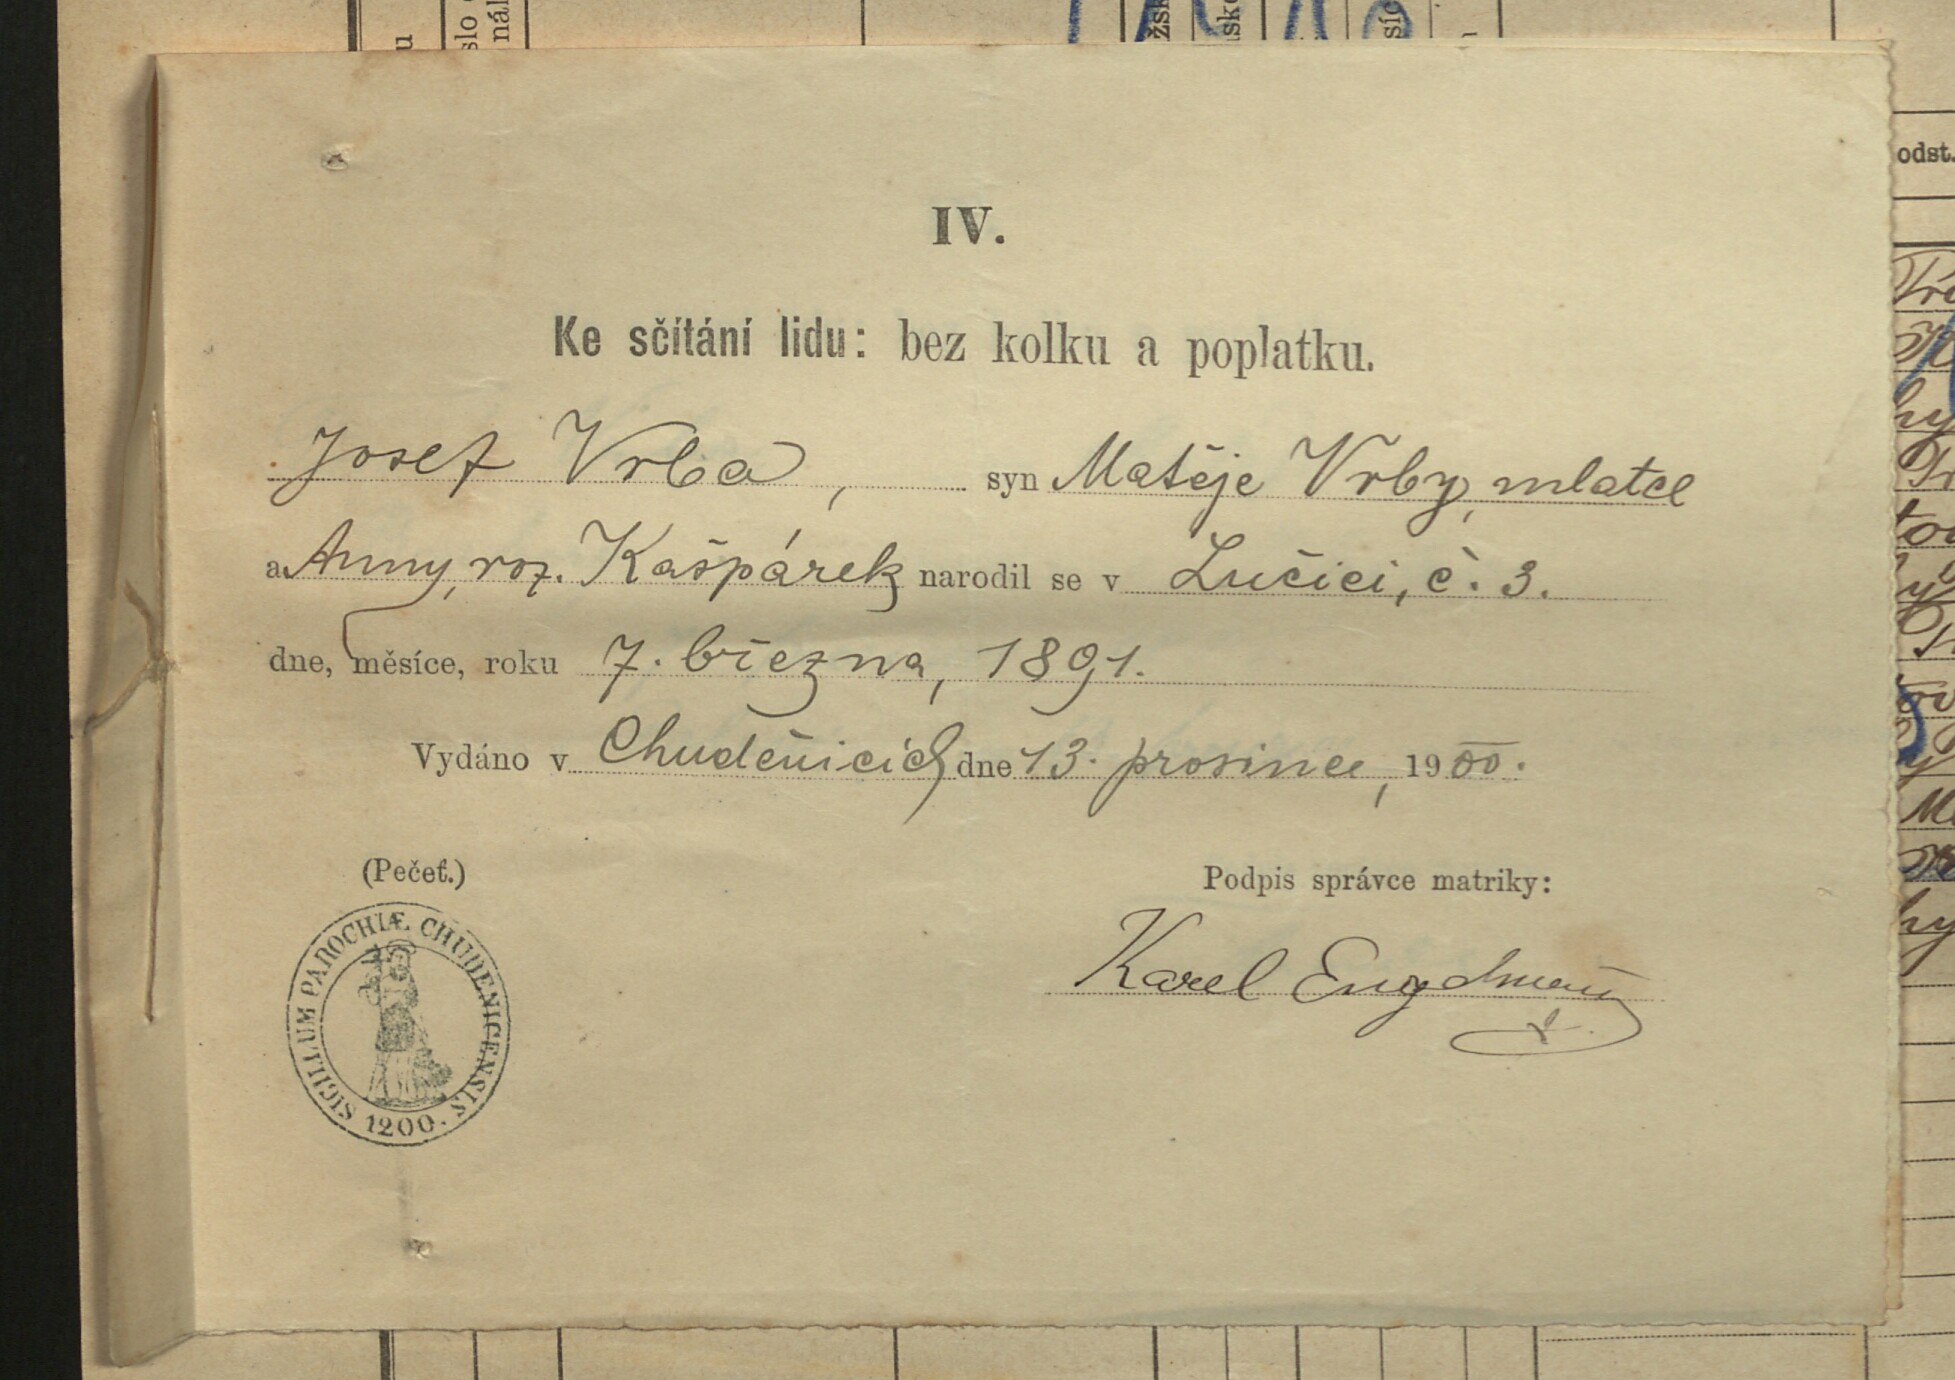 IV.
Ke sčítání lidu: bez kolku a poplatku.
Josef Vrba, syn Matěje Vrby, mlatce
a Anny, roz. Kašpárek narodil se v Lučici, č. 3.
dne, měsíce, roku 7. března, 1891.
Vydáno v Chudenicích dne 13. prosince, 1900.
(Pečeť.)
Podpis správce matriky:
Karel
SIGILLUM PAROCHIÆ CHUDENICENSIS
1200.
odst.